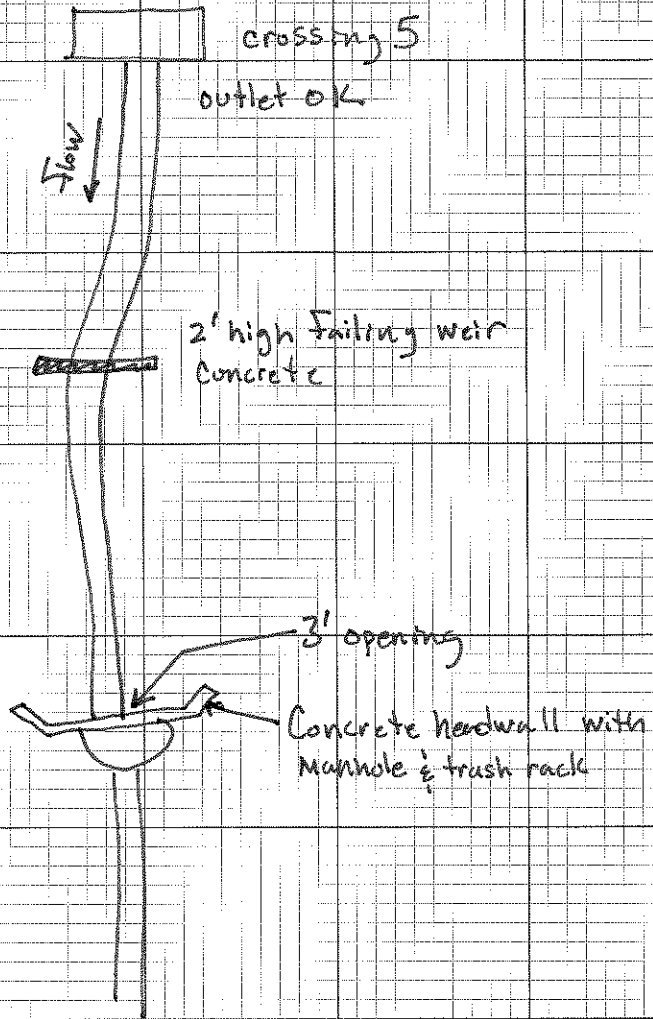 crossing 5
outlet OK
Flow
2' high failing weir
Concrete
3' opening
Concrete headwall with
Manhole & trash rack